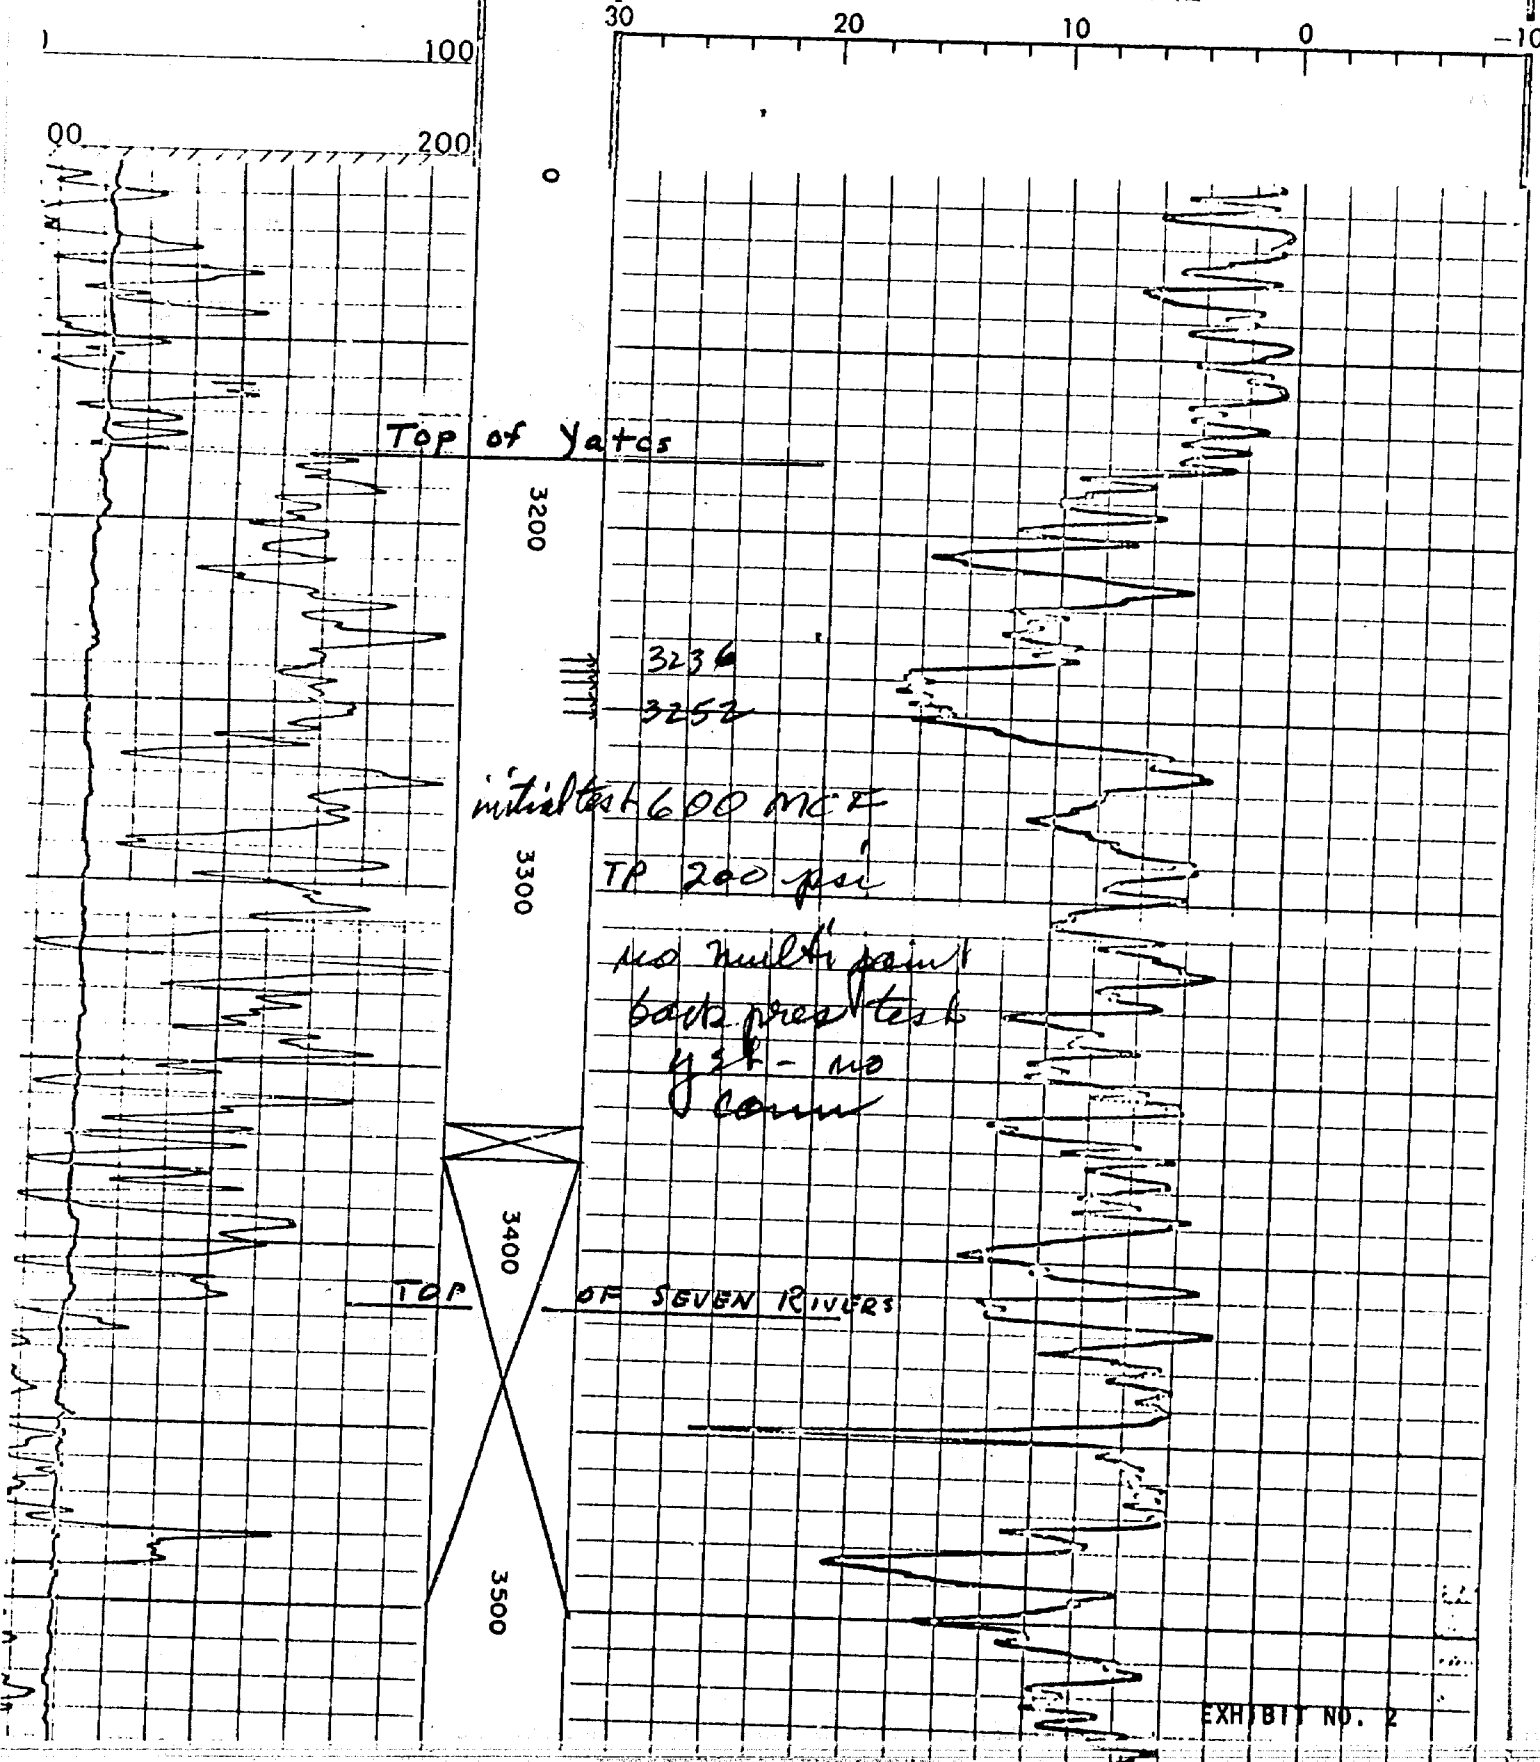 30 20 10 0 -10
100
00 200
0
Top of Yates
3200
3236
3252
initial test 600 MCF
3300
TP 200 psi
no multi point
back pres test
yet - no
conn
3400
TOP OF SEVEN RIVERS
3500
EXHIBIT NO. 2